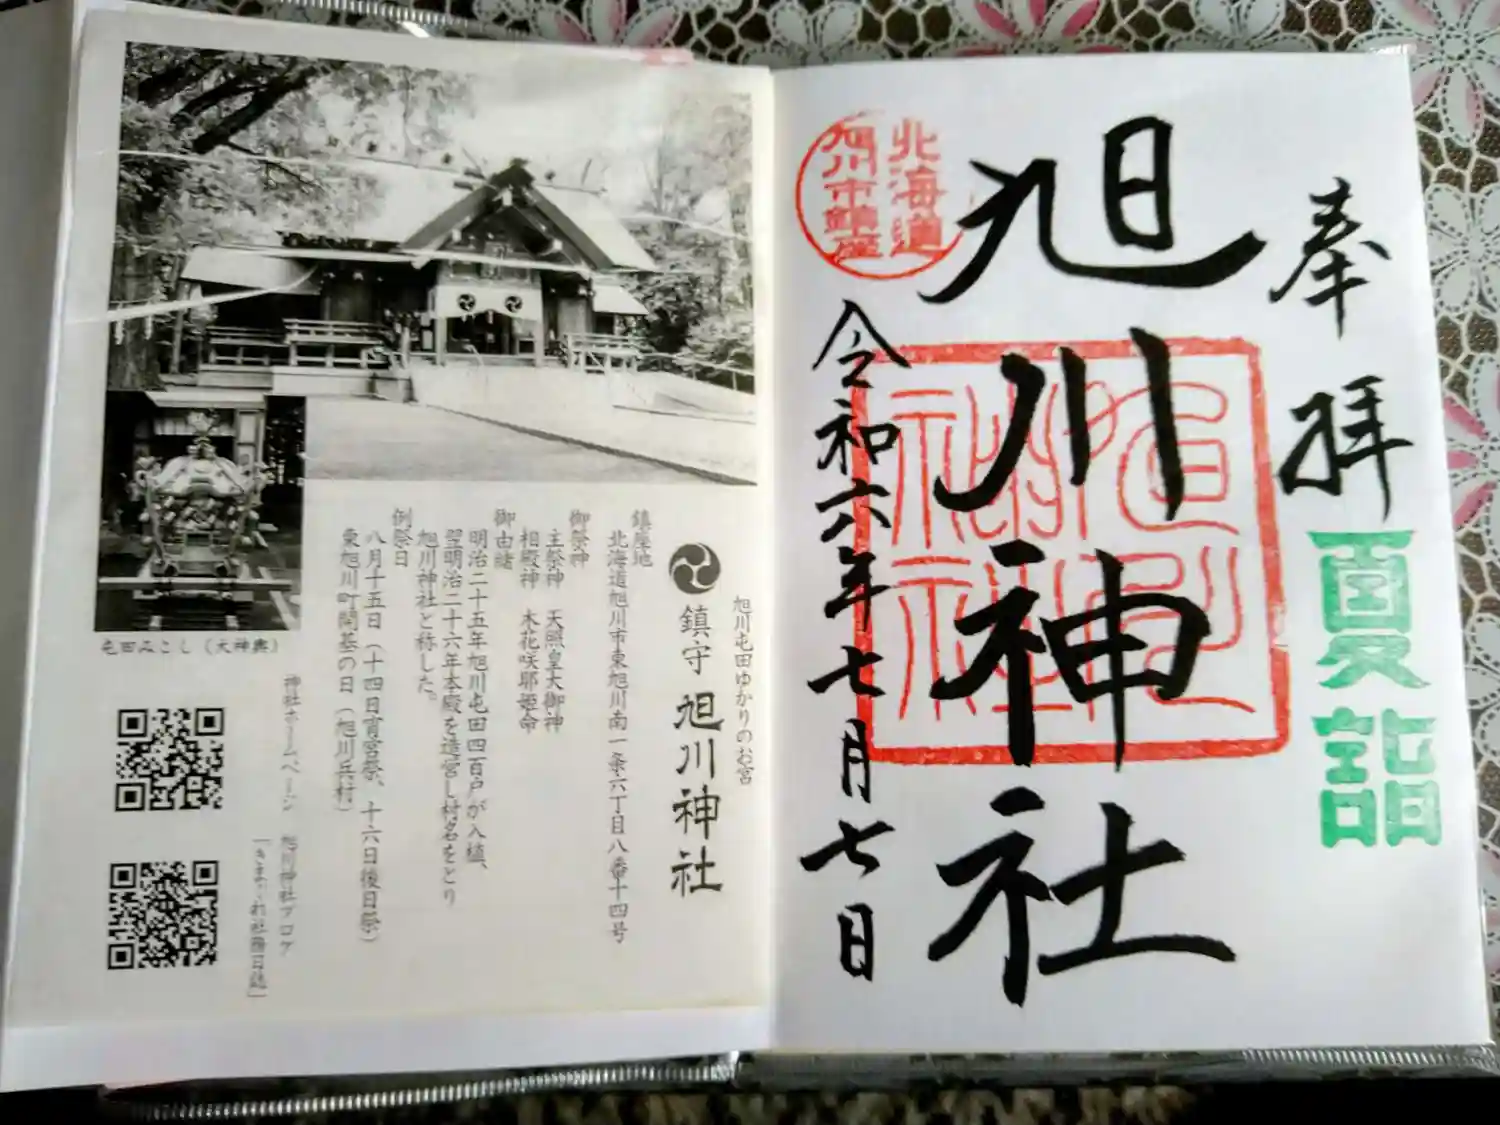 奉拝
夏詣
旭川神社
令和六年七月七日
北海道
旭川市鎮座
旭川神社
旭川屯田ゆかりのお宮
鎮守 旭川神社
鎮座地
北海道旭川市東旭川南一条六丁目八番十四号
御祭神
主祭神 天照皇大御神
相殿神 木花咲耶姫命
御由緒
明治二十五年旭川屯田四百戸が入植、
翌明治二十六年本殿を造営し村名をとり
旭川神社と称した。
例祭日
八月十五日(十四日宵宮祭、十六日後日祭)
東旭川町開基の日(旭川兵村)
屯田みこし(大神輿)
神社ホームページ
旭川神社ブログ
「きまぐれ社務日誌」